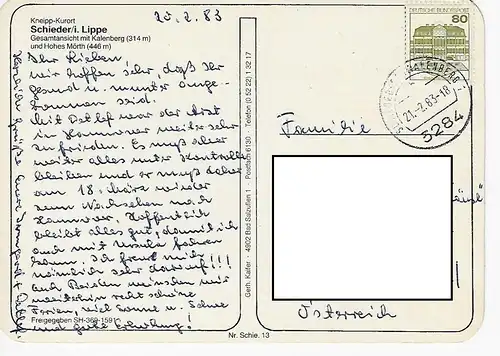 20.2.83
Kneipp-Kurort
Schieder/i. Lippe
Gesamtansicht mit Kalenberg (314 m)
und Hohes Mörth (446 m)
Ihr Lieben
wir hoffen sehr, daß Ihr
gesund u. munter ange-
kommen seid.
Mit Detlef war der Arzt
in Hannover weiter sehr
zufrieden. Es muß aber
weiter alles unter Kontrolle
bleiben und er muß daher
am 18. März wieder
zum Nachsehen nach
Hannover. Hoffentlich
bleibt alles gut, damit ich
auch mit Ursula fahren
kann. Ich freue mich
nämlich sehr darauf!!!
Euch Beiden wünschen wir
weiterhin recht schöne
Ferien, viel Sonne u. Schnee
und gute Erholung!
Herzliche Grüße Eure Irmgard u. Detlef
Freigegeben SH-369-1591
Gerh. Kaifer · 4902 Bad Salzuflen 1 · Postfach 6130 · Telefon (0 52 22) 1 32 17
Nr. Schie. 13
DEUTSCHE BUNDESPOST
80
21.-2.83-18
3284
Familie
Österreich